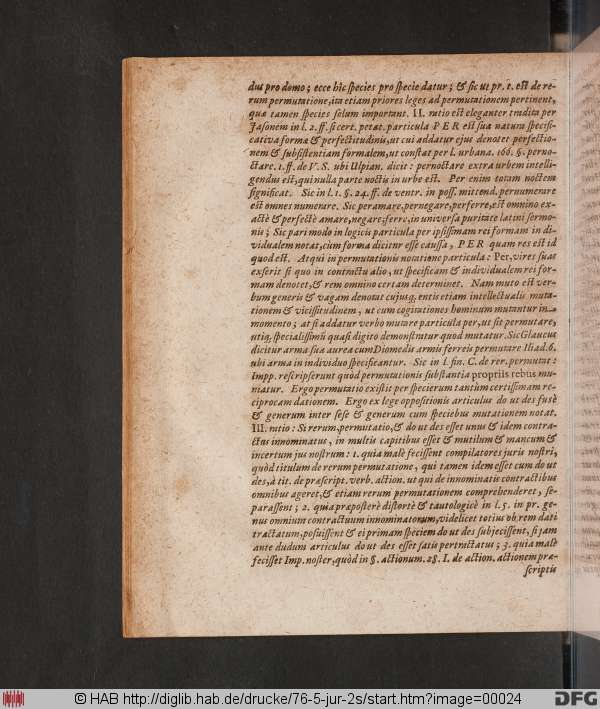 dus pro domo; ecce hîc species pro specie datur; & sic ut pr. 1. est de re-
rum permutatione, ita etiam priores leges ad permutationem pertinent,
quæ tamen species solum important. II. ratio est eleganter tradita per
Jasonem in l. 2. ff. si cert. petat. particula PER est sua natura specifi-
cativa formæ & perfectitudinis, ut cui addatur ejus denotet perfectio-
nem & subsistentiam formalem, ut constat per l. urbana. 166. §. perno-
ctare. 1. ff. de V. S. ubi Ulpian. dicit: pernoctare extra urbem intelli-
gendus est, qui nulla parte noctis in urbe est. Per enim totam noctem
significat. Sic in l. 1. §. 24. ff. de ventr. in poss. mittend. pernumerare
est omnes numerare. Sic peramare, pernegare, perferre, est omnino ex-
actè & perfectè amare, negare, ferre, in universa puritate latini sermo-
nis; Sic pari modo in logicis particula per ipsissimam rei formam in di-
vidualem notat, cùm forma dicitur esse caussa, PER quam res est id
quod est. Atqui in permutationis notatione particula: Per, vires suas
exserit si quo in contractu alio, ut specificam & individualem rei for-
mam denotet, & rem omnino certam determinet. Nam muto est ver-
bum generis & vagam denotat cujusq, entis etiam intellectualis muta-
tionem & vicissitudinem, ut cum cogitationes hominum mutantur in
momento; at si addatur verbo mutare particula per, ut sit permutare,
utiq, specialissimū quasi digito demonstratur quod mutatur. Sic Glaucus
dicitur arma sua aurea cum Diomedis armis ferreis permutare Iliad. 6.
ubi arma in individuo specificantur. Sic in l. fin. C. de rer. permutat:
Impp. rescripserunt quòd permutationis substantia propriis rebus mu-
niatur. Ergo permutatio existit per specierum tantùm certissimam re-
ciprocam dationem. Ergo ex lege oppositionis articulus do ut des fusè
& generum inter sese & generum cum speciebus mutationem notat.
III. ratio: Si rerum, permutatio, & do ut des esset unus & idem contra-
ctus innominatus, in multis capitibus esset & mutilum & mancum &
incertum jus nostrum: 1. quia malè fecissent compilatores juris nostri,
quòd titulum de rerum permutatione, qui tamen idem esset cum do ut
des, à tit. de præscript. verb. action. ut qui de innominatis contractibus
omnibus ageret, & etiam rerum permutationem comprehenderet, se-
parassent; 2. quia præposterè distortè & tautologicè in l. 5. in pr. ge-
nus omnium contractuum innominatorum, videlicet totius ob rem dati
tractatum, posuissent & ei primam speciem do ut des subjecissent, si jam
ante dudum articulus do ut des esset satis pertractatus; 3. quia malè
fecisset Imp. noster, quòd in §. actionum. 28. I. de action. actionem præ-
scriptis
© HAB http://diglib.hab.de/drucke/76-5-jur-2s/start.htm?image=00024
DFG